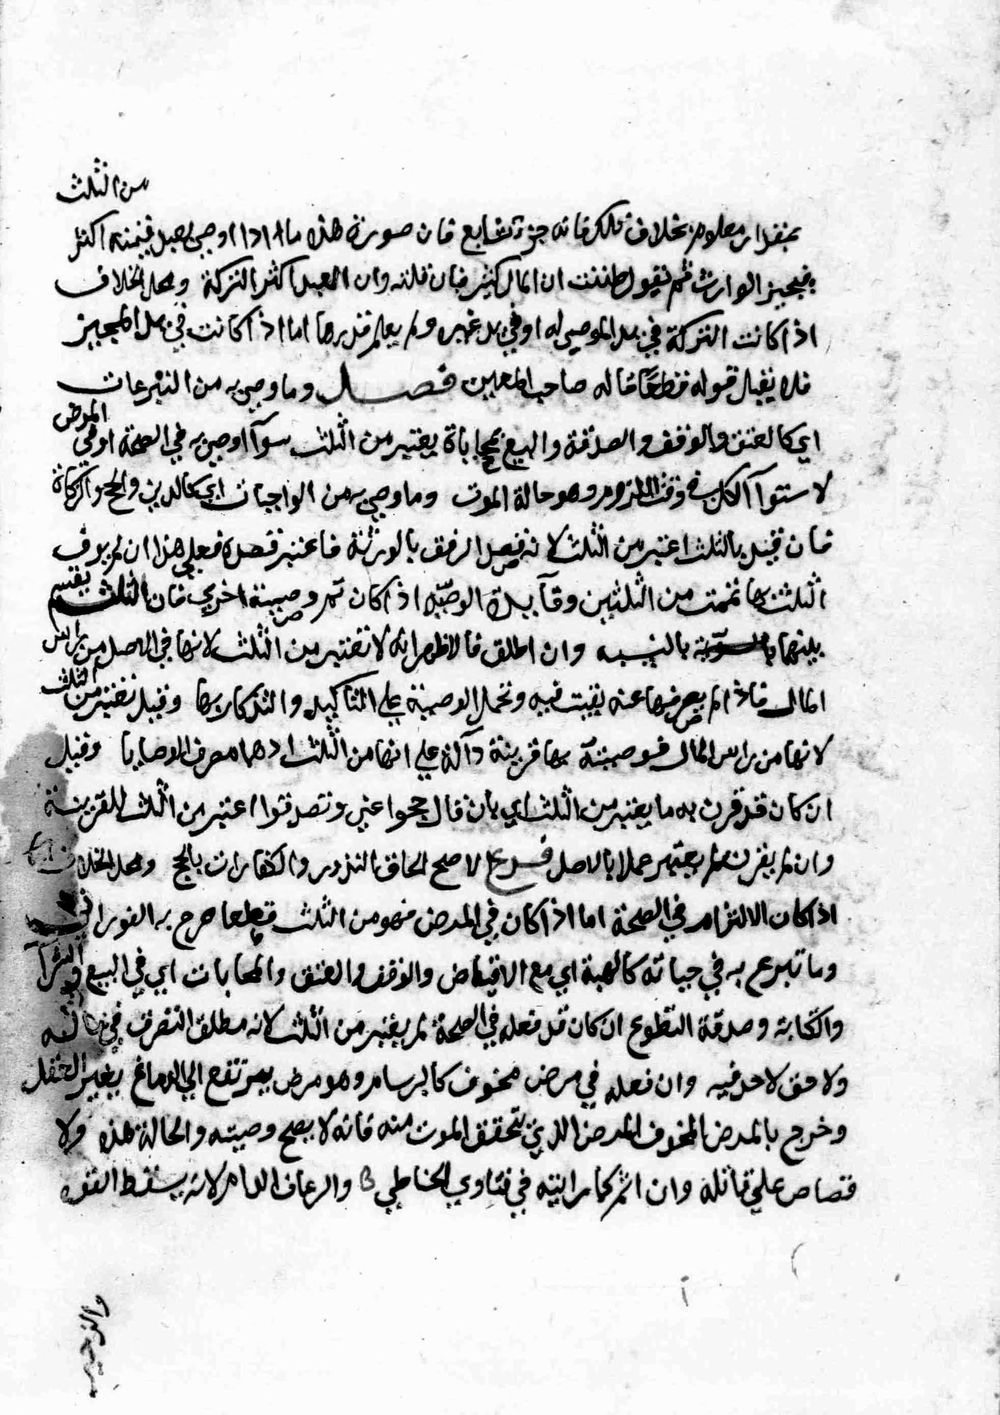 من الثلث
بمقدار معلوم بخلاف تلك فانه جزء شايع فان صورة هذه ما اذا اوصي بعبد قيمته اكثر
فيجيز الوارث ثم يقول ظننت ان المال كثير فبان قلته وان العبد اكثر التركة ومحل الخلاف
اذا كانت التركة في بلد الموصي له او في بلد غيره ولم يعلم قدرها اما اذا كانت في بلد المجيز
فلا يقبل قوله قطعا قاله صاحب المعين فصل وما وصي به من التبرعات
اي كالعتق والوقف والصدقة والبيع بمحاباة يعتبر من الثلث سوآ اوصي به في الصحة او في المرض
لاستوآ الكل في وقت اللزوم وهو حالة الموت وما وصي به من الواجبات اي كالدين والحج والزكاة
فان قيل بالثلث اعتبر من الثلث لانه قصد الرفق بالورثة فاعتبر قصده فعلي هذا ان لم يوف
الثلث بها تممت من الثلثين وفآيدة الوصية اذا كان ثم وصية اخري فان الثلث يقسم
بينهما بالنسبه وان اطلق فالاظهر انه لا تعتبر من الثلث لانها في الاصل من راس
المال فاذا لم يعرضها عنه بقيت فيه وتحمل الوصية علي التاكيد والتذكار بها وقيل تعتبر من الثلث
لانها من راس المال فوصيته بها قرينة دآلة علي انها من الثلث اذ هو مصرف الوصايا وقيل
ان كان قد قرن به ما يعتبر من الثلث اي بان قال حجوا عني وتصدقوا اعتبر من الثلث للقرينة
وان لم يقرن لم يعتبر عملا بالاصل فرع الاصح الحاق النذور والكفارات بالحج ومحل الخلاف
اذا كان الالتزام في الصحة اما اذا كان في المرض فهو من الثلث قطعا صرح به الفوراني
وما تبرع به في حياته كالهبة اي مع الاقباض والوقف والعتق والمحابات اي في البيع والشرآ
والكتابة وصدقة التطوع ان كان قد فعله في الصحة لم يعتبر من الثلث لانه مطلق التصرف في ماله
ولا حق لاحد فيه وان فعله في مرض مخوف كالبرسام وهو مرض يرتفع الي الدماغ يغير العقل
وخرج بالمرض المخوف المرض الذي تحقق الموت منه فانه لا يصح وصيته والحالة هذه ولا
قصاص علي قاتله وان اثم كما رايته في فتاوي الحناطي والرعاف الدام لانه يسقط القوه